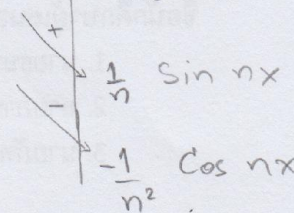 +
1/n Sin nx
−
-1/n² Cos nx